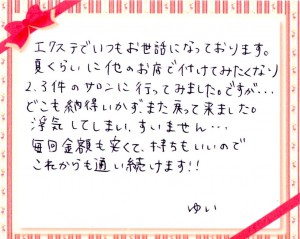 エクステでいつもお世話になっております。
夏くらいに他のお店で付けてみたくなり
2.3件のサロンに行ってみました。ですが…
どこも納得いかず、また戻って来ました。
浮気してしまい、すいません…
毎回金額も安くて、持ちもいいので
これからも通い続けます!!
ゆい